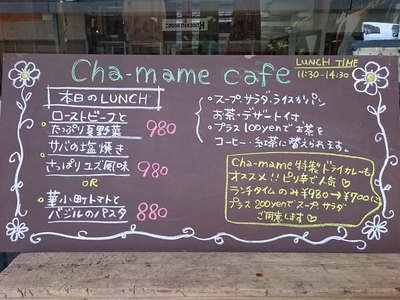 Cha-mame cafe
LUNCH TIME
11:30-14:30
本日のLUNCH
・ローストビーフと
たっぷり夏野菜 980
・サバの塩焼き
さっぱりユズ風味 980
OR
・華小町トマトと
バジルのパスタ 880
・スープ.サラダ.ライスorパン
お茶・デザート付.
・プラス100yenでお茶を
コーヒー・紅茶に替えられます。
Cha-mame 特製ドライカレーも
オススメ!! ピリ辛で人気
ランチタイムのみ¥980→¥700に
プラス200yenでスープ.サラダ
ご用意します